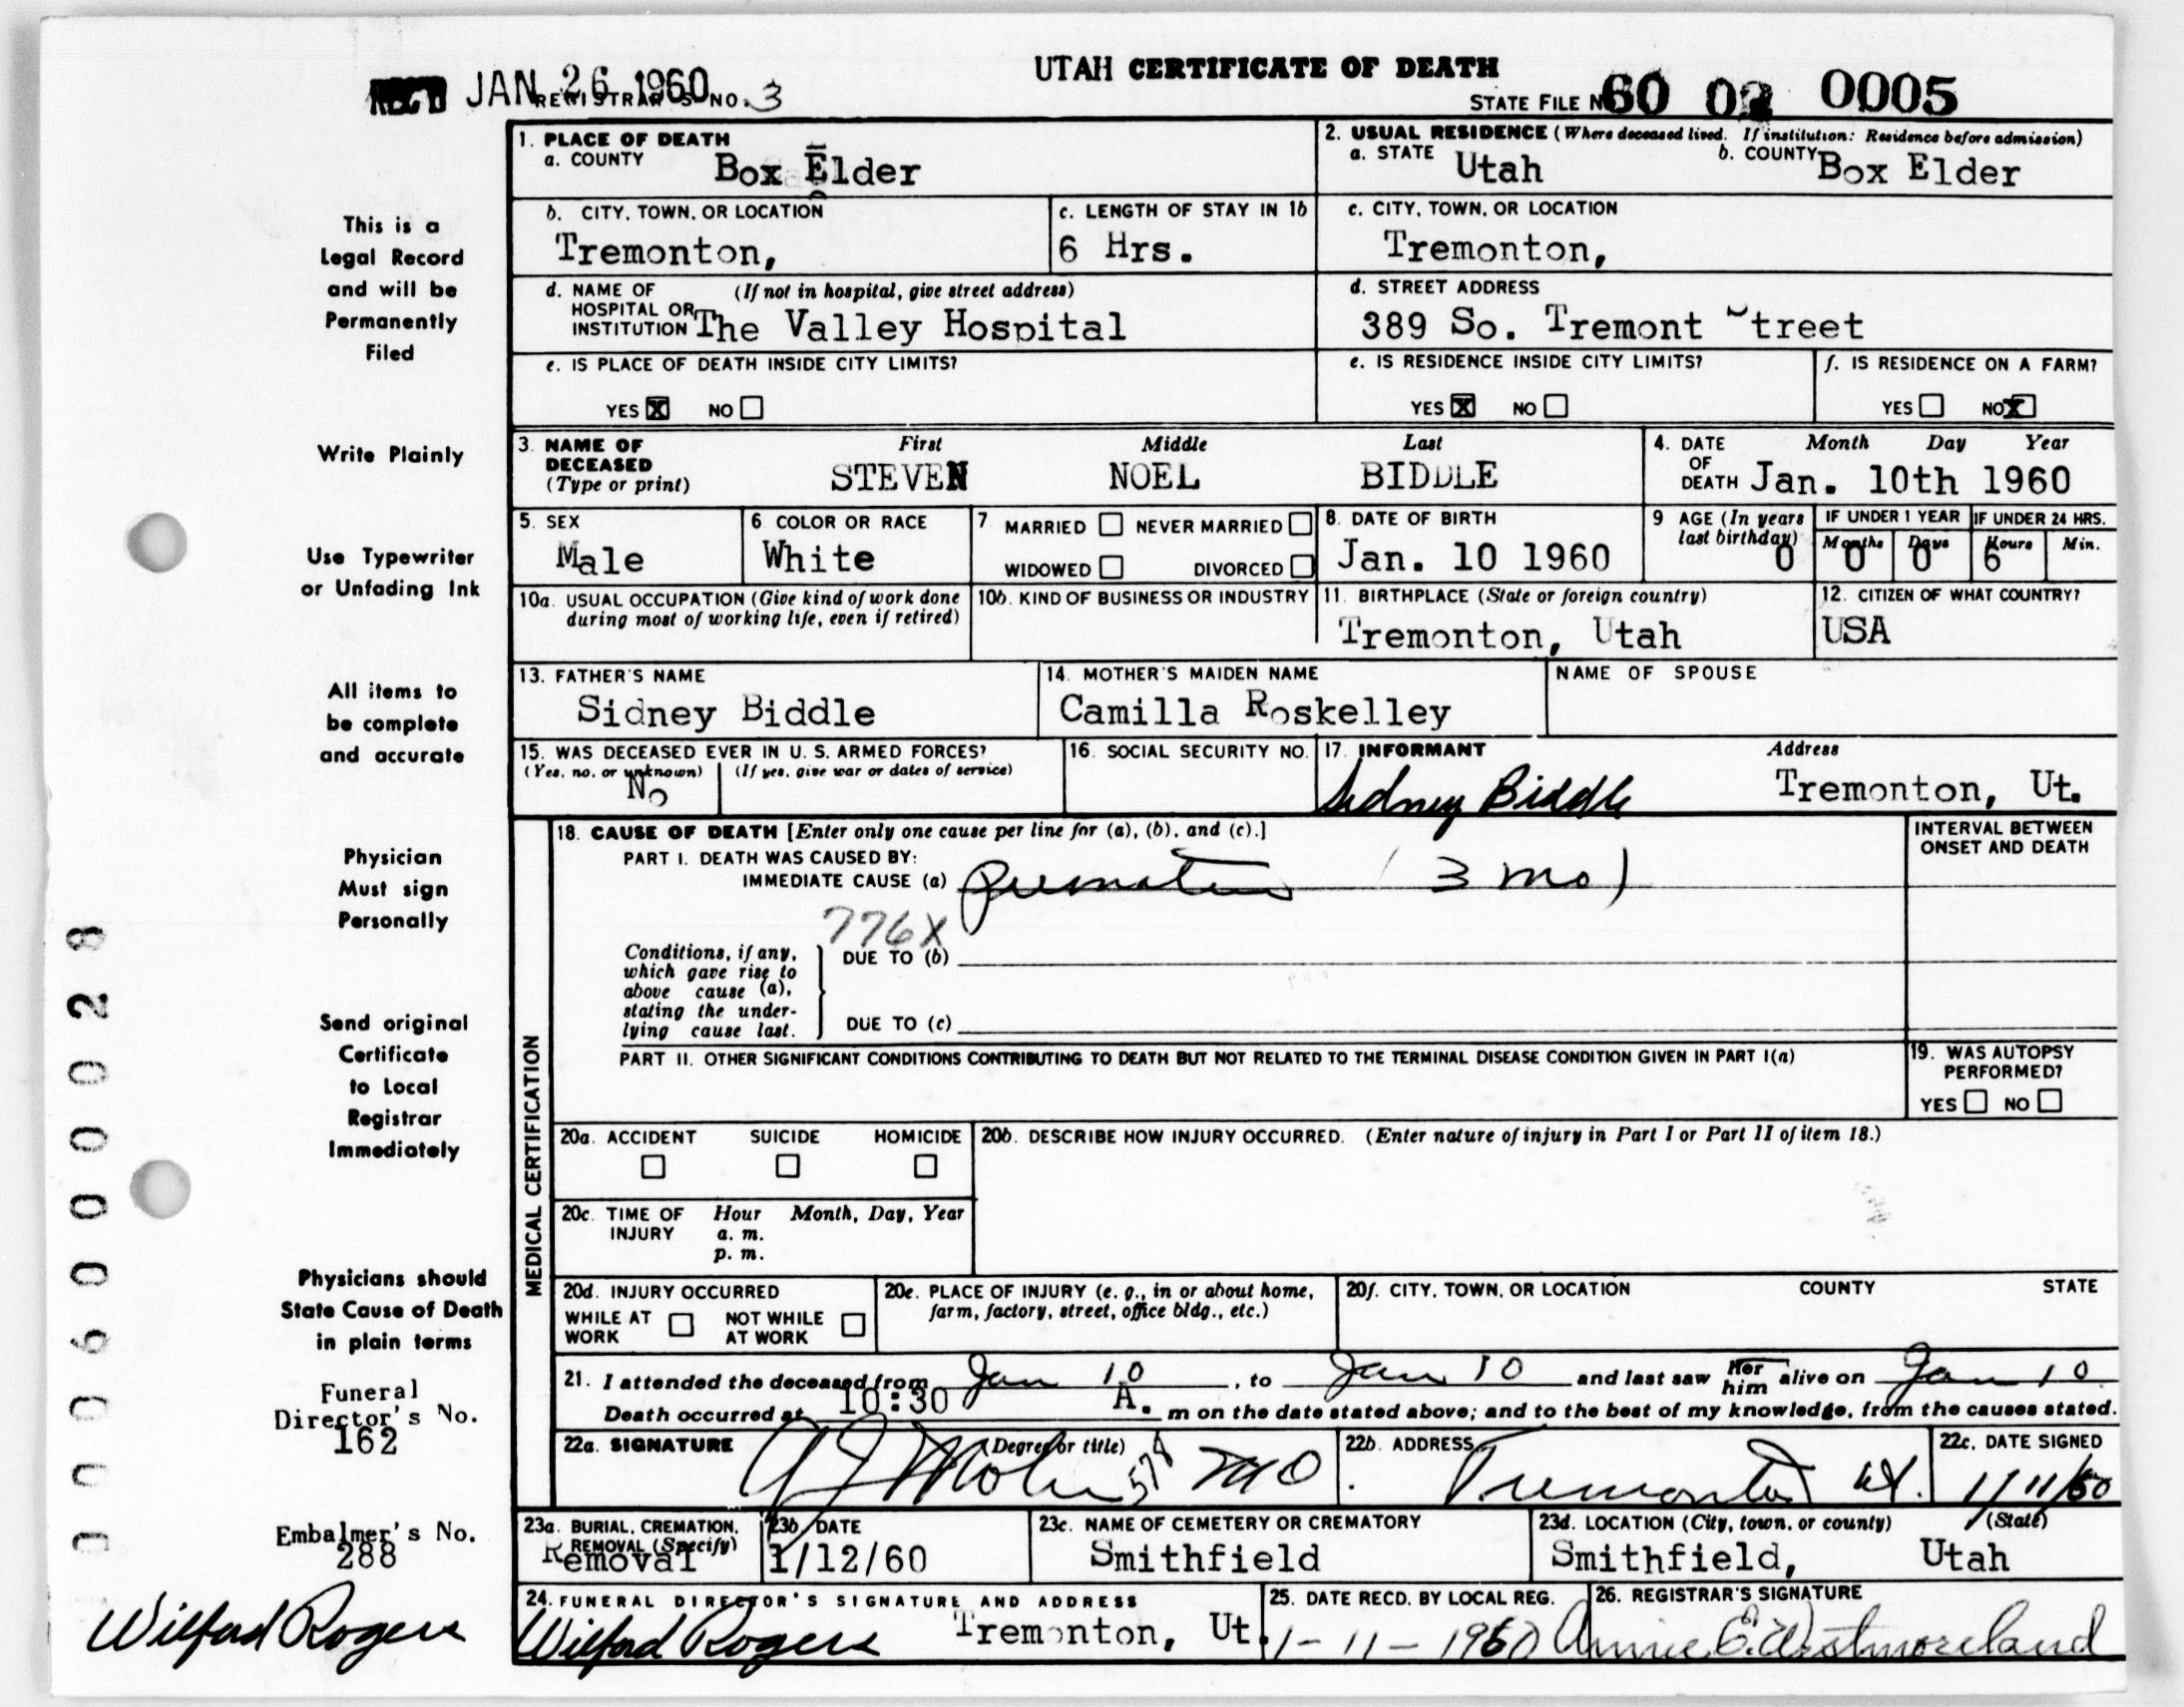 UTAH CERTIFICATE OF DEATH
REC'D JAN 26 1960 REGISTRAR'S NO. 3
STATE FILE NO. 60 02 0005
1. PLACE OF DEATH
a. COUNTY Box Elder
2. USUAL RESIDENCE (Where deceased lived. If institution: Residence before admission)
a. STATE Utah b. COUNTY Box Elder
b. CITY, TOWN, OR LOCATION Tremonton,
c. LENGTH OF STAY IN 1b 6 Hrs.
c. CITY, TOWN, OR LOCATION Tremonton,
d. NAME OF HOSPITAL OR INSTITUTION (If not in hospital, give street address) The Valley Hospital
d. STREET ADDRESS 389 So. Tremont Street
e. IS PLACE OF DEATH INSIDE CITY LIMITS?
YES X NO
e. IS RESIDENCE INSIDE CITY LIMITS?
YES X NO
f. IS RESIDENCE ON A FARM?
YES NO X
3. NAME OF DECEASED (Type or print)
First Middle Last
STEVEN NOEL BIDDLE
4. DATE OF DEATH Month Day Year
Jan. 10th 1960
5. SEX Male
6 COLOR OR RACE White
7 MARRIED NEVER MARRIED
WIDOWED DIVORCED
8. DATE OF BIRTH Jan. 10 1960
9 AGE (In years last birthday) 0
IF UNDER 1 YEAR Months 0 Days 0
IF UNDER 24 HRS. Hours 6 Min.
10a. USUAL OCCUPATION (Give kind of work done during most of working life, even if retired)
10b. KIND OF BUSINESS OR INDUSTRY
11. BIRTHPLACE (State or foreign country) Tremonton, Utah
12. CITIZEN OF WHAT COUNTRY? USA
13. FATHER'S NAME Sidney Biddle
14. MOTHER'S MAIDEN NAME Camilla Roskelley
NAME OF SPOUSE
15. WAS DECEASED EVER IN U. S. ARMED FORCES?
(Yes, no, or unknown) (If yes, give war or dates of service)
No
16. SOCIAL SECURITY NO.
17. INFORMANT Address
Sidney Biddle Tremonton, Ut.
MEDICAL CERTIFICATION
18. CAUSE OF DEATH [Enter only one cause per line for (a), (b), and (c).]
INTERVAL BETWEEN ONSET AND DEATH
PART I. DEATH WAS CAUSED BY:
IMMEDIATE CAUSE (a) premature (3 mo)
776X
Conditions, if any, which gave rise to above cause (a), stating the underlying cause last.
DUE TO (b)
DUE TO (c)
PART II. OTHER SIGNIFICANT CONDITIONS CONTRIBUTING TO DEATH BUT NOT RELATED TO THE TERMINAL DISEASE CONDITION GIVEN IN PART I(a)
19. WAS AUTOPSY PERFORMED?
YES NO
20a. ACCIDENT SUICIDE HOMICIDE
20b. DESCRIBE HOW INJURY OCCURRED. (Enter nature of injury in Part I or Part II of item 18.)
20c. TIME OF INJURY Hour Month, Day, Year
a. m.
p. m.
20d. INJURY OCCURRED
WHILE AT WORK NOT WHILE AT WORK
20e. PLACE OF INJURY (e. g., in or about home, farm, factory, street, office bldg., etc.)
20f. CITY, TOWN, OR LOCATION COUNTY STATE
21. I attended the deceased from Jan 10, to Jan 10 and last saw her him alive on Jan 10.
Death occurred at 10:30 A. m on the date stated above; and to the best of my knowledge, from the causes stated.
22a. SIGNATURE (Degree or title) MD
22b. ADDRESS Tremonton Ut.
22c. DATE SIGNED 1/11/60
23a. BURIAL, CREMATION, REMOVAL (Specify) Removal
23b. DATE 1/12/60
23c. NAME OF CEMETERY OR CREMATORY Smithfield
23d. LOCATION (City, town, or county) (State)
Smithfield, Utah
24. FUNERAL DIRECTOR'S SIGNATURE AND ADDRESS
Wilford Rogers Tremonton, Ut.
25. DATE RECD. BY LOCAL REG. 1-11-1960
26. REGISTRAR'S SIGNATURE Annie E. Westmoreland
This is a
Legal Record
and will be
Permanently
Filed
Write Plainly
Use Typewriter
or Unfading Ink
All items to
be complete
and accurate
Physician
Must sign
Personally
Send original
Certificate
to Local
Registrar
Immediately
Physicians should
State Cause of Death
in plain terms
Funeral
Director's No.
162
Embalmer's No.
288
Wilford Rogers
0 0 0 6 0 0 0 0 2 8